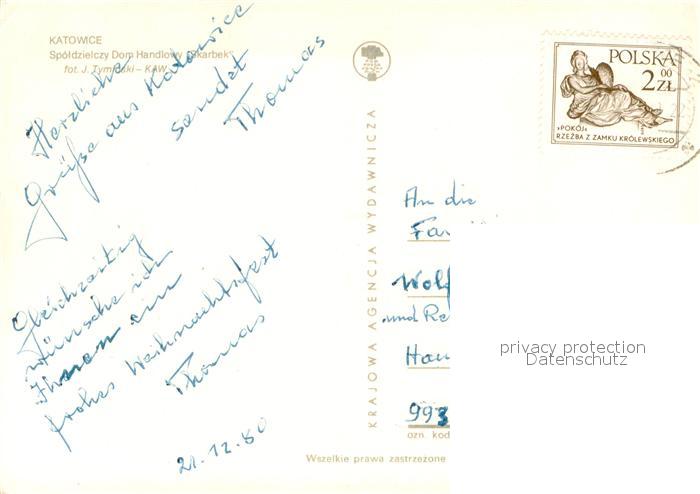 KATOWICE
Spółdzielczy Dom Handlowy „Skarbek"
fot. J. Tymiński – KAW
Herzliche
Grüße aus Katowice
sendet
Thomas
Gleichzeitig
wünsche ich
Ihnen ein
frohes Weihnachtsfest
Thomas
21.12.80
KRAJOWA AGENCJA WYDAWNICZA
POLSKA
2 00 ZŁ
»POKÓJ«
RZEŹBA Z ZAMKU KRÓLEWSKIEGO
An die
Fa
Wolf
und Re
Hau
993
ozn. kod
Wszelkie prawa zastrzeżone
privacy protection
Datenschutz